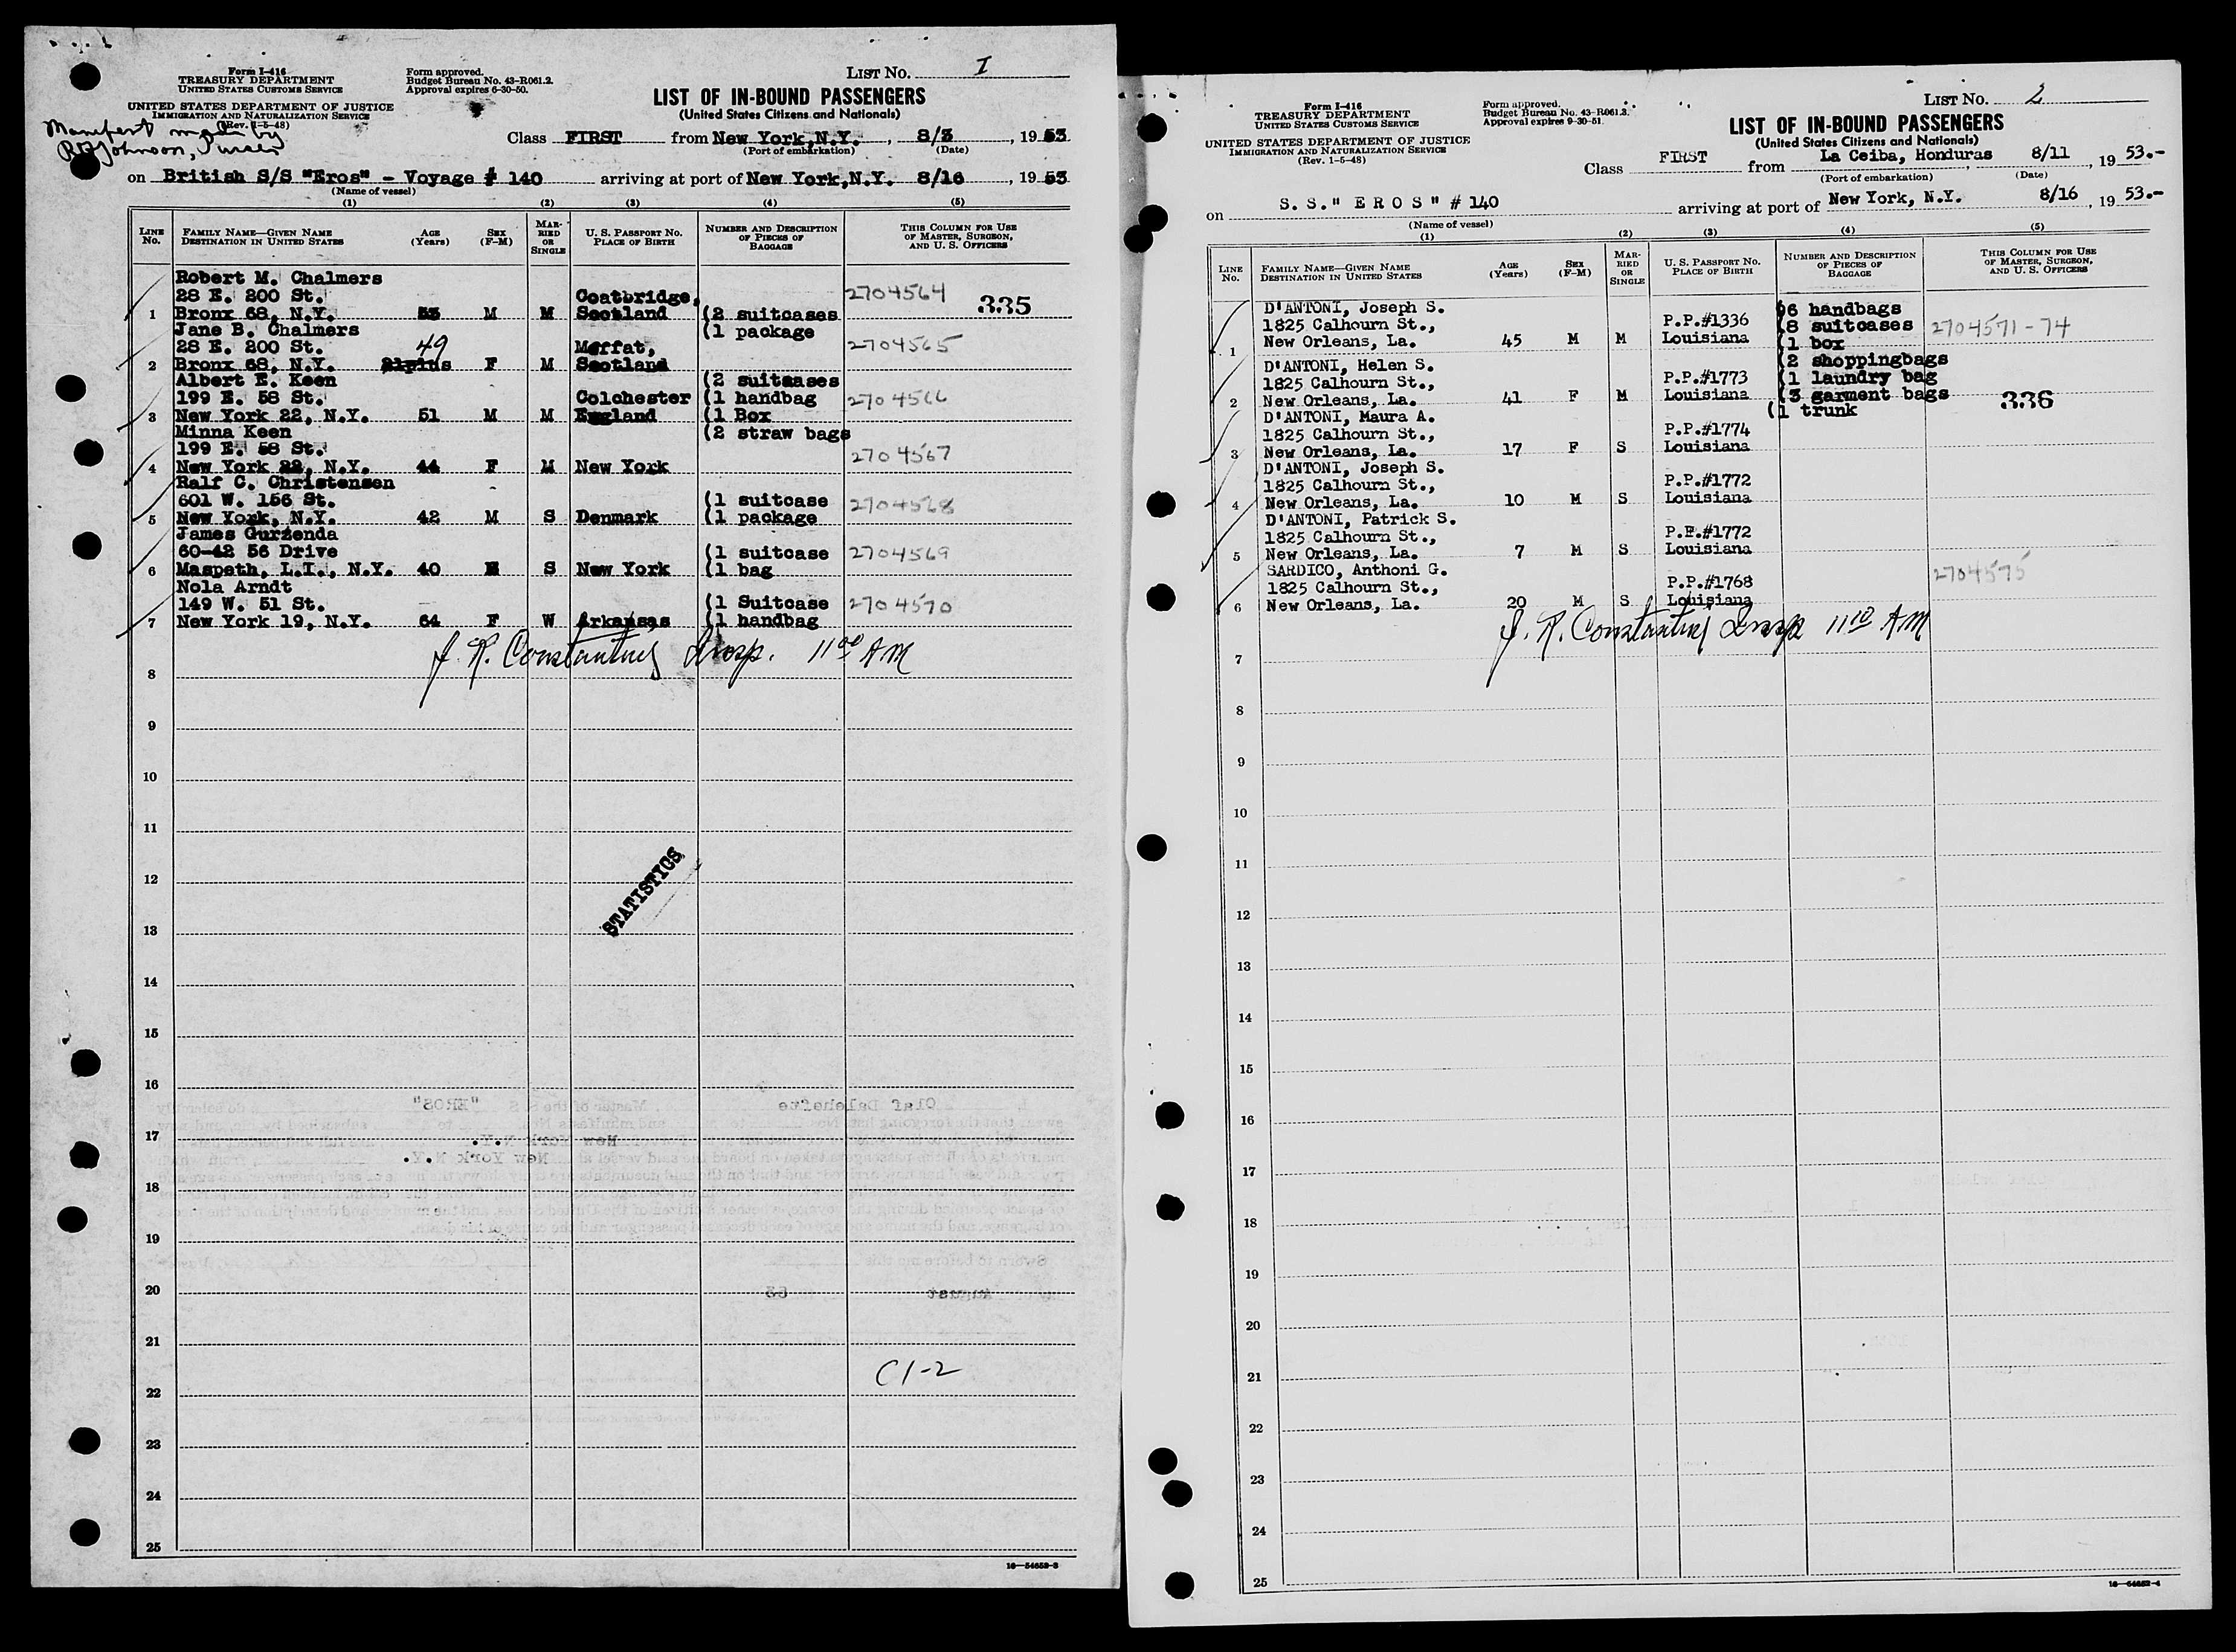 Form I-416
TREASURY DEPARTMENT
UNITED STATES CUSTOMS SERVICE
UNITED STATES DEPARTMENT OF JUSTICE
IMMIGRATION AND NATURALIZATION SERVICE
(Rev. 1-5-48)
Form approved.
Budget Bureau No. 43-R061.2.
Approval expires 6-30-50.
LIST No. I
LIST OF IN-BOUND PASSENGERS
(United States Citizens and Nationals)
Manifest made by
Johnson, Purser
Class FIRST from New York, N.Y., 8/3, 1953
(Port of embarkation) (Date)
on British S/S "Eros" - Voyage # 140 arriving at port of New York, N.Y. 8/16, 1953
(Name of vessel)
(1) (2) (3) (4) (5)
LINE No.
FAMILY NAME—GIVEN NAME
DESTINATION IN UNITED STATES
AGE (Years)
SEX (F-M)
MARRIED OR SINGLE
U. S. PASSPORT NO.
PLACE OF BIRTH
NUMBER AND DESCRIPTION OF PIECES OF BAGGAGE
THIS COLUMN FOR USE OF MASTER, SURGEON, AND U. S. OFFICERS
Robert M. Chalmers
28 E. 200 St. Coatbridge, 2704564 335
1 Bronx 68, N.Y. 53 M M Scotland (2 suitcases
Jane B. Chalmers (1 package
28 E. 200 St. 49 Moffat, 2704565
2 Bronx 68, N.Y. F M Scotland
Albert E. Keen (2 suitcases
199 E. 58 St. Colchester (1 handbag 2704566
3 New York 22, N.Y. 51 M M England (1 Box
Minna Keen (2 straw bags
199 E. 58 St. 2704567
4 New York 22, N.Y. 44 F M New York
Ralf C. Christensen
601 W. 156 St. (1 suitcase 2704568
5 New York, N.Y. 42 M S Denmark (1 package
James Gurzenda
60-42 56 Drive (1 suitcase 2704569
6 Maspeth, L.I., N.Y. 40 M S New York (1 bag
Nola Arndt
149 W. 51 St. (1 Suitcase 2704570
7 New York 19, N.Y. 64 F W Arkansas (1 handbag
J. R. Constantine Insp. 11 00 AM
8
9
10
11
12
STATISTICS
13
14
15
16
17
18
19
20
21
C1-2
22
23
24
25
16—54652-3
Form I-416
TREASURY DEPARTMENT
UNITED STATES CUSTOMS SERVICE
UNITED STATES DEPARTMENT OF JUSTICE
IMMIGRATION AND NATURALIZATION SERVICE
(Rev. 1-5-48)
Form approved.
Budget Bureau No. 43-R061.2.
Approval expires 9-30-51.
LIST No. 2
LIST OF IN-BOUND PASSENGERS
(United States Citizens and Nationals)
Class FIRST from La Ceiba, Honduras, 8/11, 1953.-
(Port of embarkation) (Date)
on S.S." E R O S " # 140 arriving at port of New York, N.Y. 8/16, 1953.-
(Name of vessel)
(1) (2) (3) (4) (5)
LINE No.
FAMILY NAME—GIVEN NAME
DESTINATION IN UNITED STATES
AGE (Years)
SEX (F-M)
MARRIED OR SINGLE
U. S. PASSPORT NO.
PLACE OF BIRTH
NUMBER AND DESCRIPTION OF PIECES OF BAGGAGE
THIS COLUMN FOR USE OF MASTER, SURGEON, AND U. S. OFFICERS
D'ANTONI, Joseph S. (6 handbags
1825 Calhourn St., P.P.#1336 (8 suitcases 2704571-74
1 New Orleans, La. 45 M M Louisiana (1 box
D'ANTONI, Helen S. (2 shoppingbags
1825 Calhourn St., P.P.#1773 (1 laundry bag
2 New Orleans, La. 41 F M Louisiana (3 garment bags 336
D'ANTONI, Maura A. (1 trunk
1825 Calhourn St., P.P.#1774
3 New Orleans, La. 17 F S Louisiana
D'ANTONI, Joseph S.
1825 Calhourn St., P.P.#1772
4 New Orleans, La. 10 M S Louisiana
D'ANTONI, Patrick S.
1825 Calhourn St., P.P.#1772
5 New Orleans, La. 7 M S Louisiana
SARDICO, Anthoni G. 2704575
1825 Calhourn St., P.P.#1768
6 New Orleans, La. 20 M S Louisiana
J. R. Constantine Insp 11 10 AM
7
8
9
10
11
12
13
14
15
16
17
18
19
20
21
22
23
24
25
16—54652-4